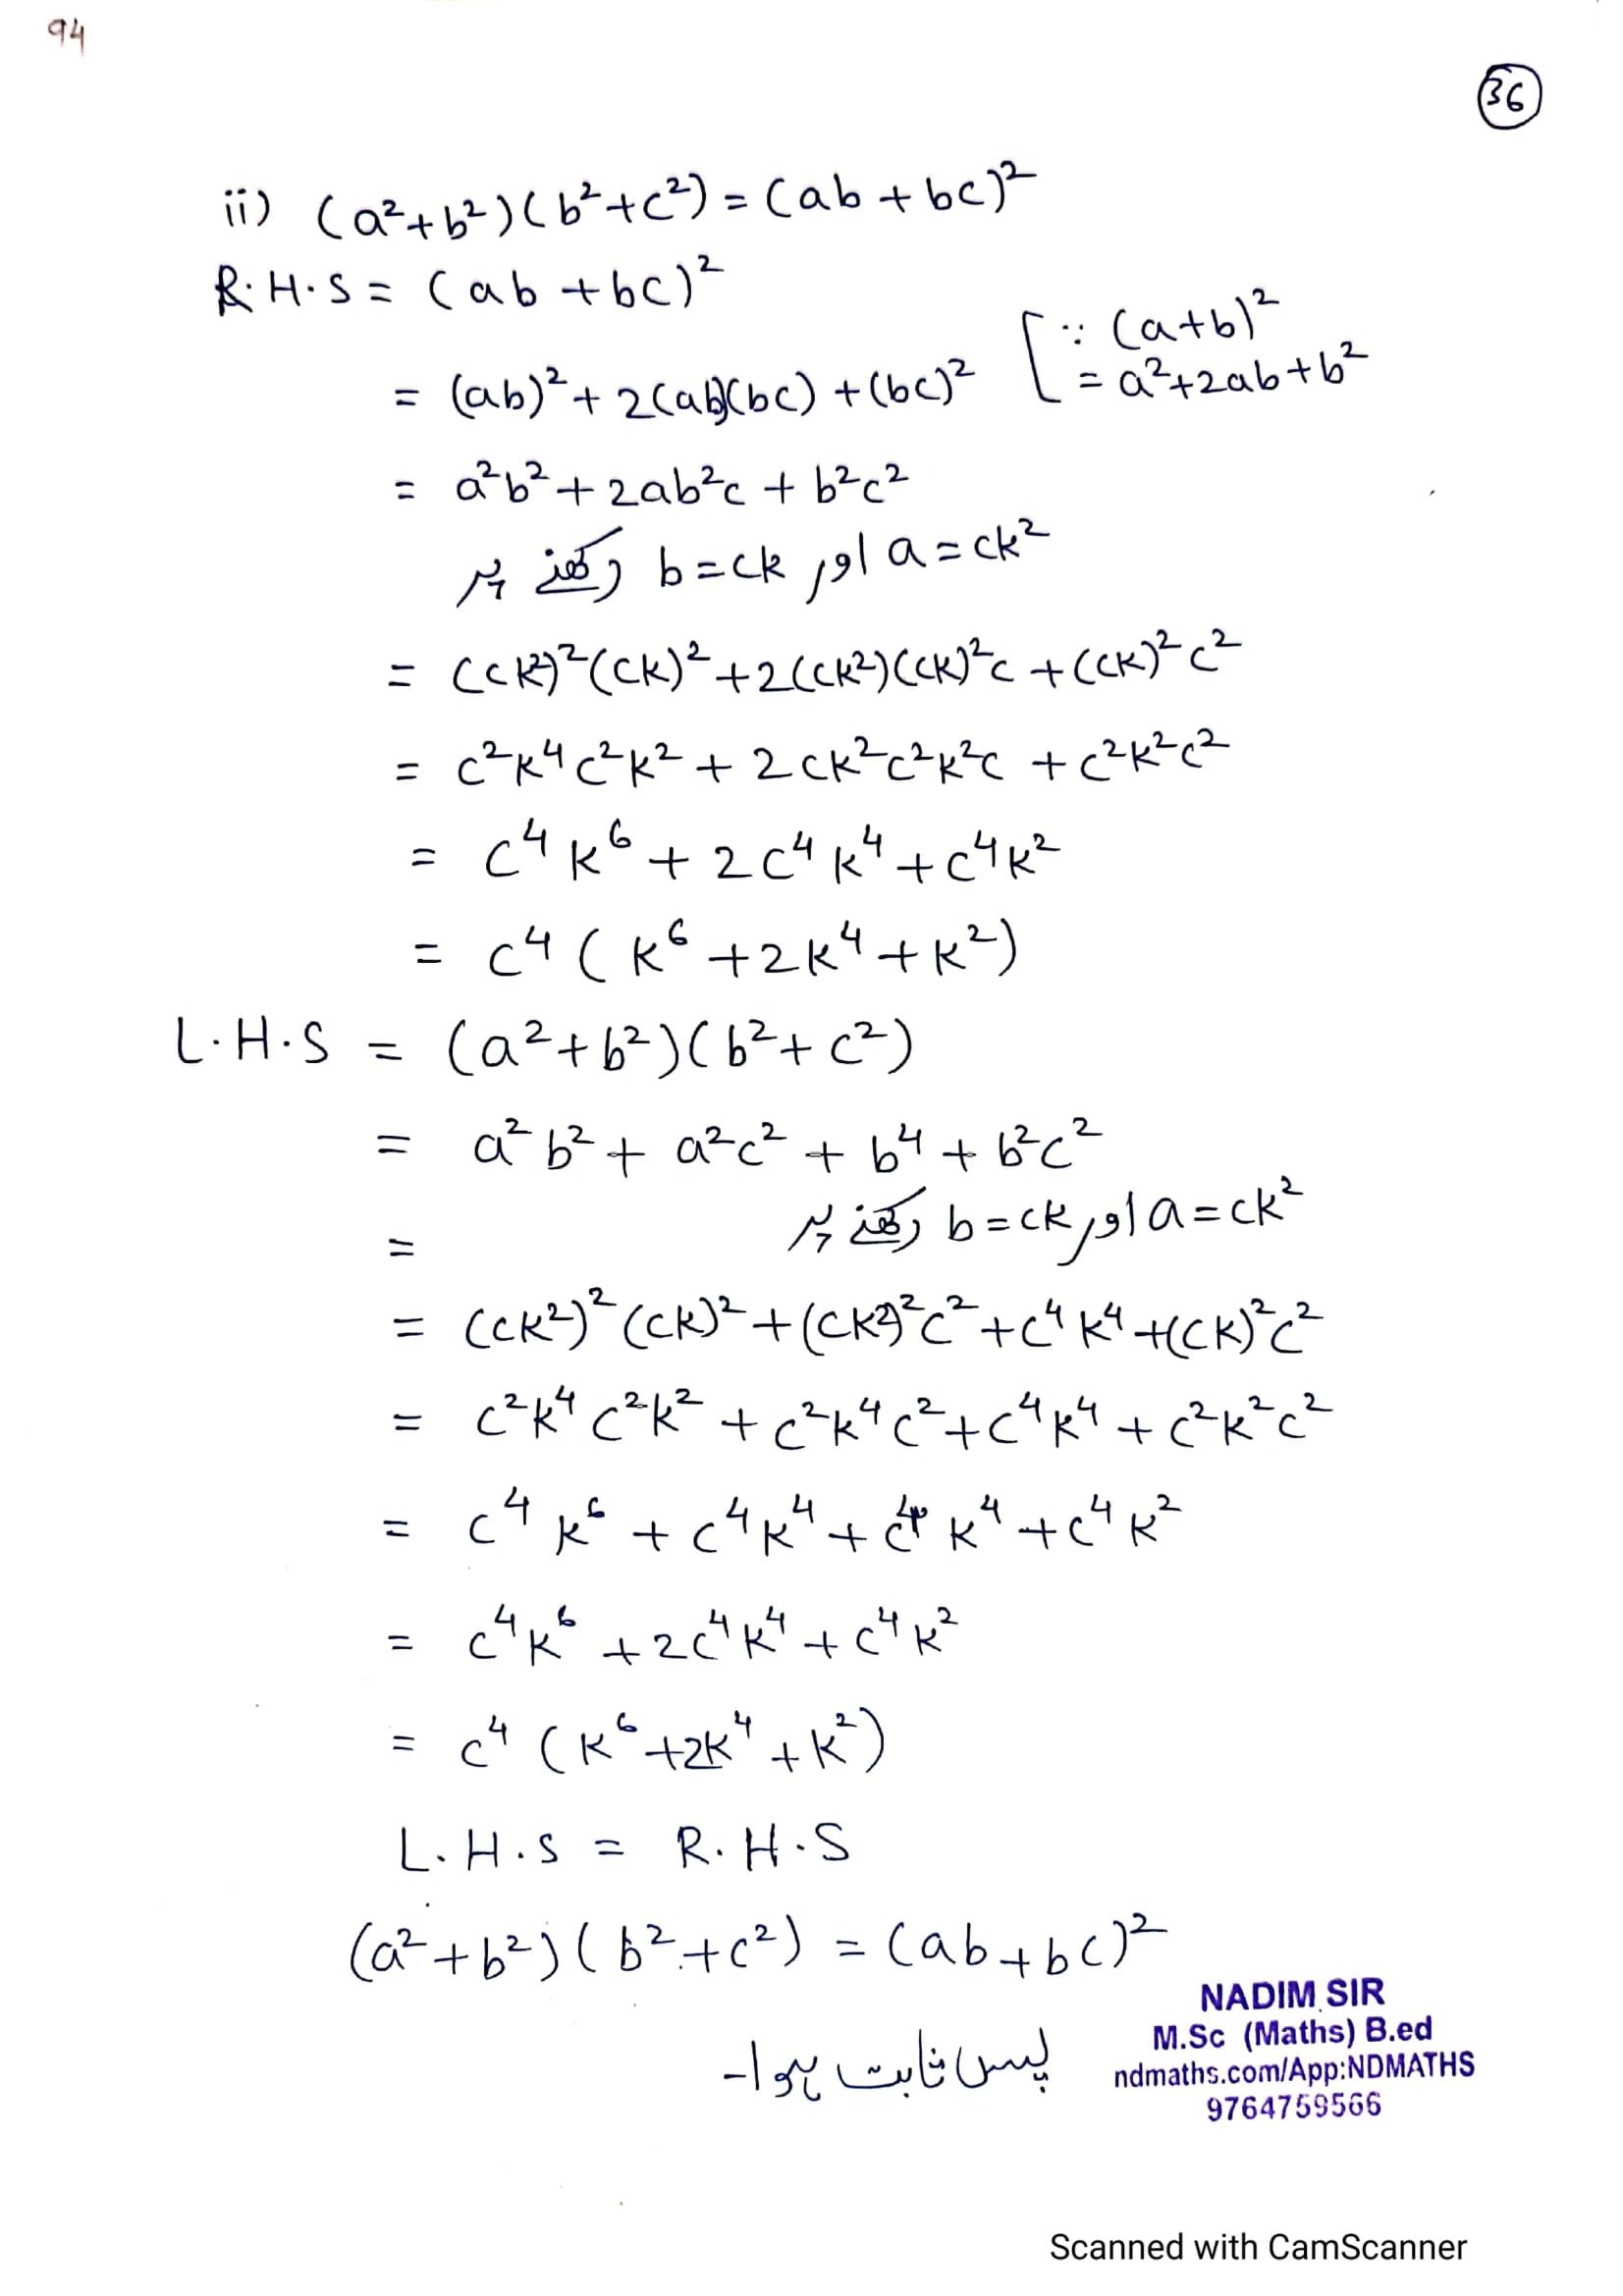 94
36
ii) (a²+b²)(b²+c²) = (ab+bc)²
R.H.S = (ab+bc)²
= (ab)²+2(ab)(bc)+(bc)² [∵ (a+b)²
= a²+2ab+b²
= a²b²+2ab²c+b²c²
a=ck² اور b=ck رکھنے پر
= (ck²)²(ck)²+2(ck²)(ck)²c+(ck)²c²
= c²k⁴c²k²+2ck²c²k²c+c²k²c²
= c⁴k⁶+2c⁴k⁴+c⁴k²
= c⁴(k⁶+2k⁴+k²)
L.H.S = (a²+b²)(b²+c²)
= a²b²+a²c²+b⁴+b²c²
= a=ck² اور b=ck رکھنے پر
= (ck²)²(ck)²+(ck²)²c²+c⁴k⁴+(ck)²c²
= c²k⁴c²k²+c²k⁴c²+c⁴k⁴+c²k²c²
= c⁴k⁶+c⁴k⁴+c⁴k⁴+c⁴k²
= c⁴k⁶+2c⁴k⁴+c⁴k²
= c⁴(k⁶+2k⁴+k²)
L.H.S = R.H.S
(a²+b²)(b²+c²) = (ab+bc)²
پس ثابت ہوا۔
NADIM SIR
M.Sc (Maths) B.ed
ndmaths.com/App:NDMATHS
9764759566
Scanned with CamScanner